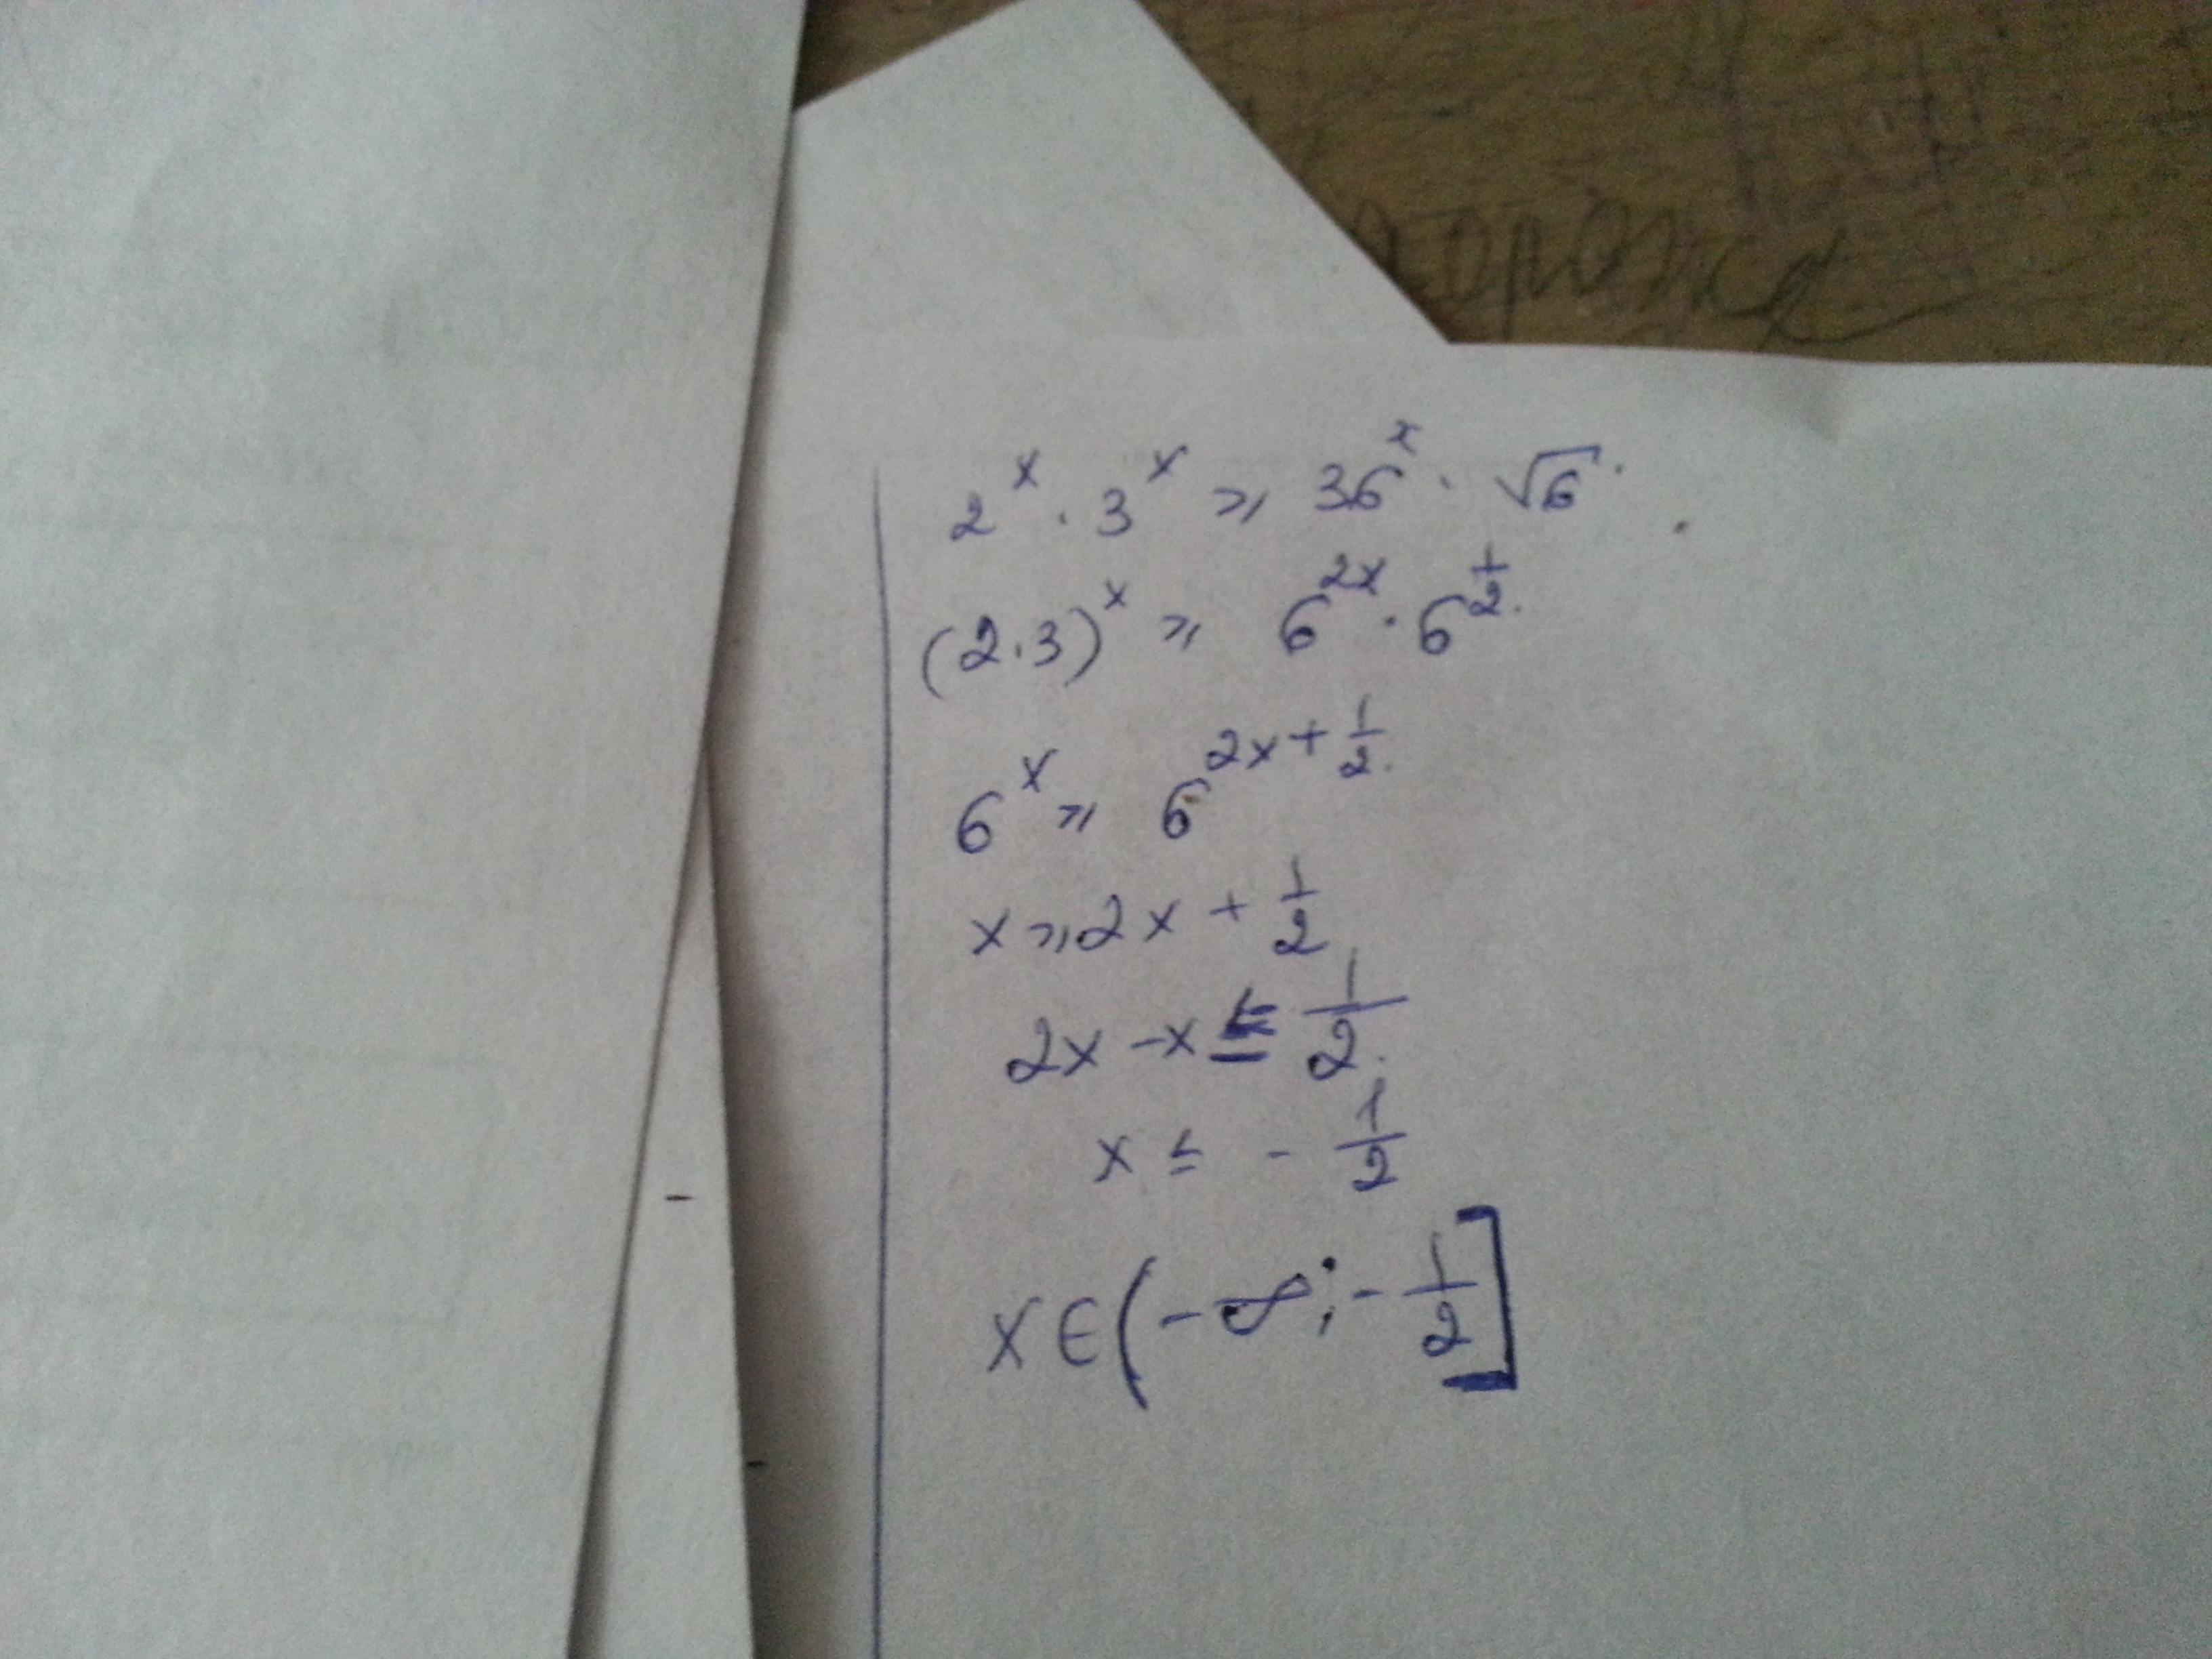 2^x · 3^x ⩾ 36^x · √6.
(2·3)^x ⩾ 6^2x · 6^1/2.
6^x ⩾ 6^2x+1/2.
x ⩾ 2x + 1/2
2x - x ≤ 1/2.
x ≤ - 1/2
x ∈ (-∞; -1/2]